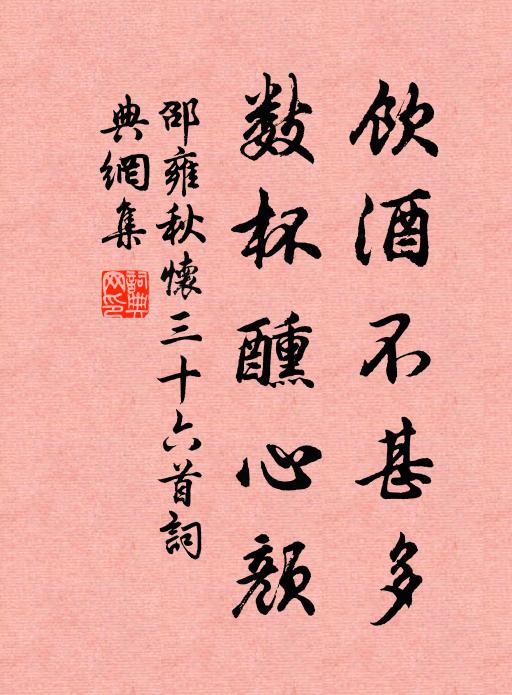 飲酒不甚多
數杯醺心顏
邵雍秋懷三十六首詞
典網集
詞典网印